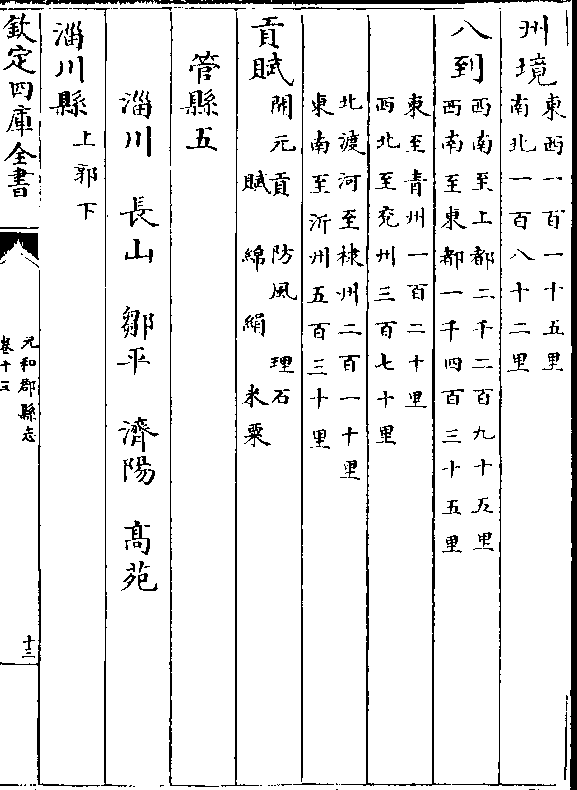 州境東西一百一十五里
南北一百八十二里
八到西南至上都二千二百九十五里
西南至東都一千四百三十五里
東至青州一百二十里
西北至兖州三百七十里
北渡河至棣州二百一十里
東南至沂州五百三十里
貢賦開元貢 防風 理石
賦 綿 絹 米粟
管縣五
淄川 長山 鄒平 濟陽 高苑
淄川縣上郭下
欽定四庫全書
元和郡縣志
卷十三
十二